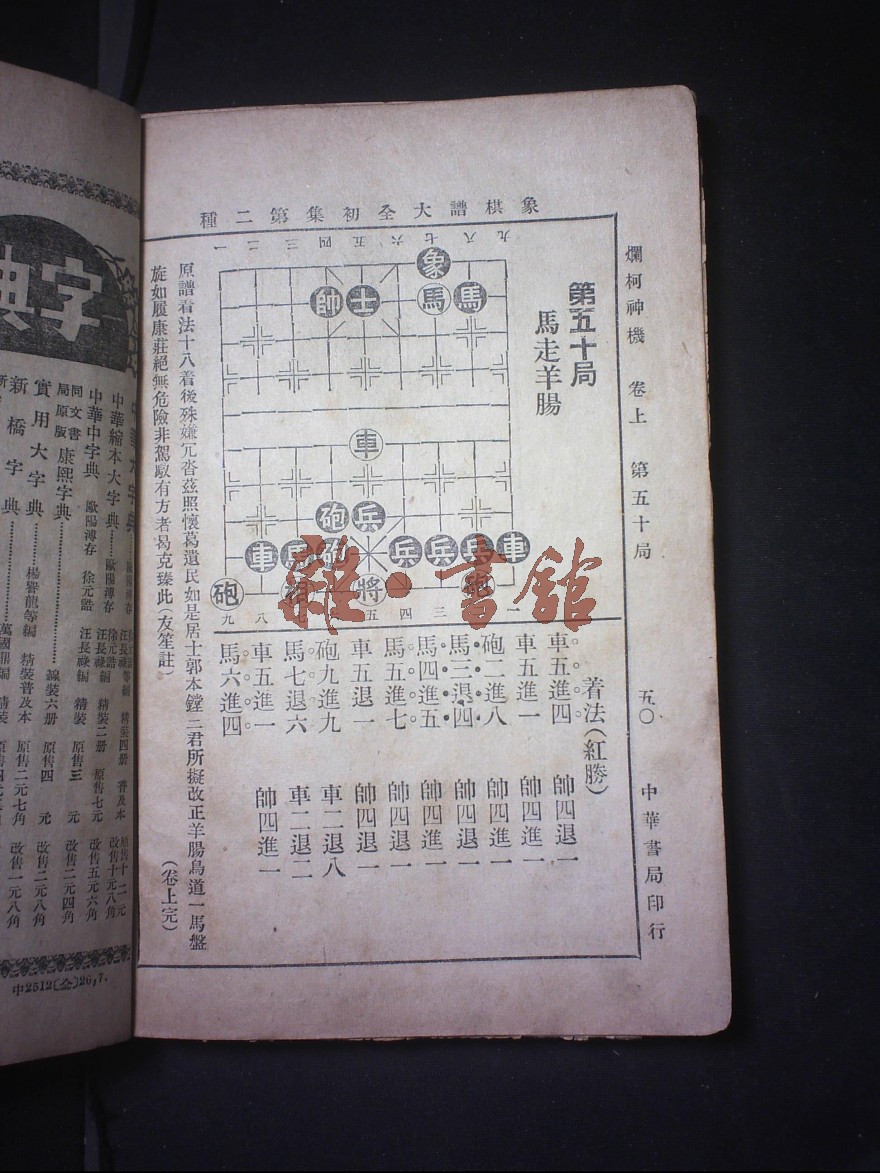 象棋譜大全初集第二種
爛柯神機 卷上 第五十局 五〇 中華書局印行
第五十局
馬走羊腸
一 二 三 四 五 六 七 八 九
象
帥 士 馬 馬
車
砲 兵
車 馬 砲 兵 兵 兵 車
砲 相 將 砲
九 八 七 五 四 三 一
着法(紅勝)
車五進四 帥四退一
車五進一 帥四進一
砲二進八 帥四進一
馬三退四 帥四退一
馬四進五 帥四進一
馬五進七 帥四退一
車五退一 帥四退一
砲九進九 車二退八
馬七退六 車二退二
車五進一 帥四進一
馬六進四
原譜着法十八着後殊嫌冗沓茲照懷葛遺民如是居士郭本鏜二君所擬改正羊腸鳥道一馬盤
旋如履康莊絕無危險非駕馭有方者曷克臻此(友笙註)
(卷上完)
雜·書館
字典
中華大字典
中華縮本大字典 歐陽溥存
中華中字典 歐陽溥存 徐元誥 汪長祿編 精裝二冊 原售七元 改售五元六角
同文書局原版 康熙字典 線裝六冊 原售三元 改售二元四角
實用大字典 楊譽龍等編 精裝普及本 原售四元
新橋字典
中2512(全)26,7.